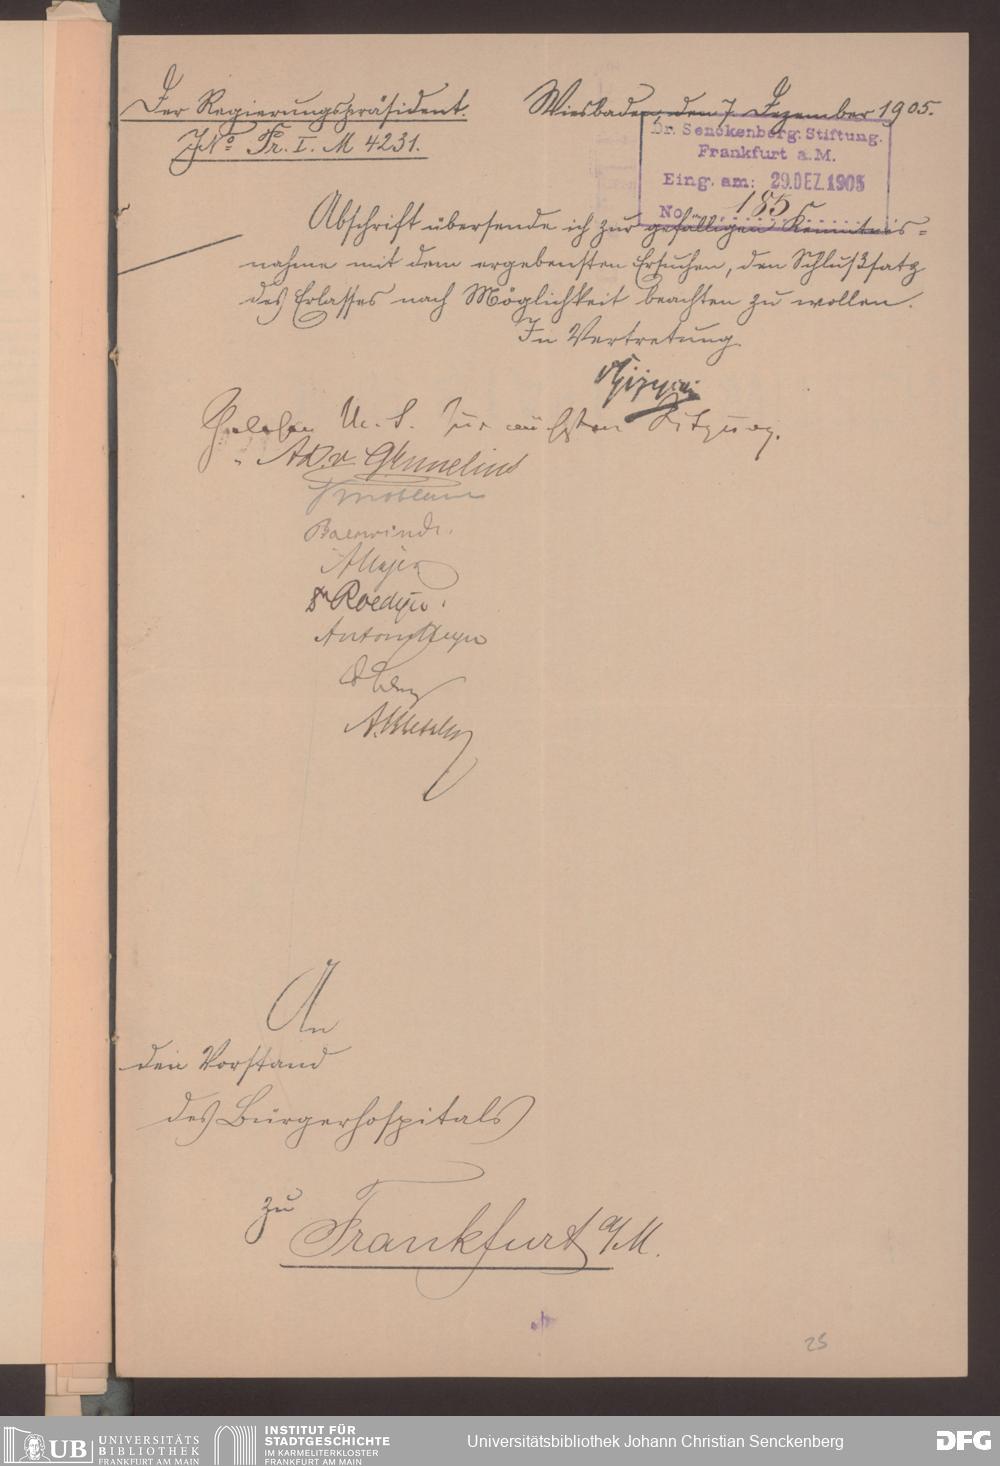 Der Regierungspräsident.
Wiesbaden, den 7. Dezember 1905.
JNo Pr. I. M 4231.
Dr. Senckenberg. Stiftung.
Frankfurt a. M.
Eing. am: 29. DEZ. 1905
No. 185
Abschrift übersende ich zur gefälligen Kenntnis=
nahme mit dem ergebensten Ersuchen, den Schlußsatz
des Erlasses nach Möglichkeit beachten zu wollen.
In Vertretung
Gelesen zur nächsten Sitzung.
Knoblauch
Baerwindt.
A Mayer
Dr Roediger.
Anton Heyer
A. Metzler
An
den Vorstand
des Bürgerhospitals
zu
Frankfurt a/M.
25
UB UNIVERSITÄTS
BIBLIOTHEK
FRANKFURT AM MAIN
INSTITUT FÜR
STADTGESCHICHTE
IM KARMELITERKLOSTER
FRANKFURT AM MAIN
Universitätsbibliothek Johann Christian Senckenberg
DFG